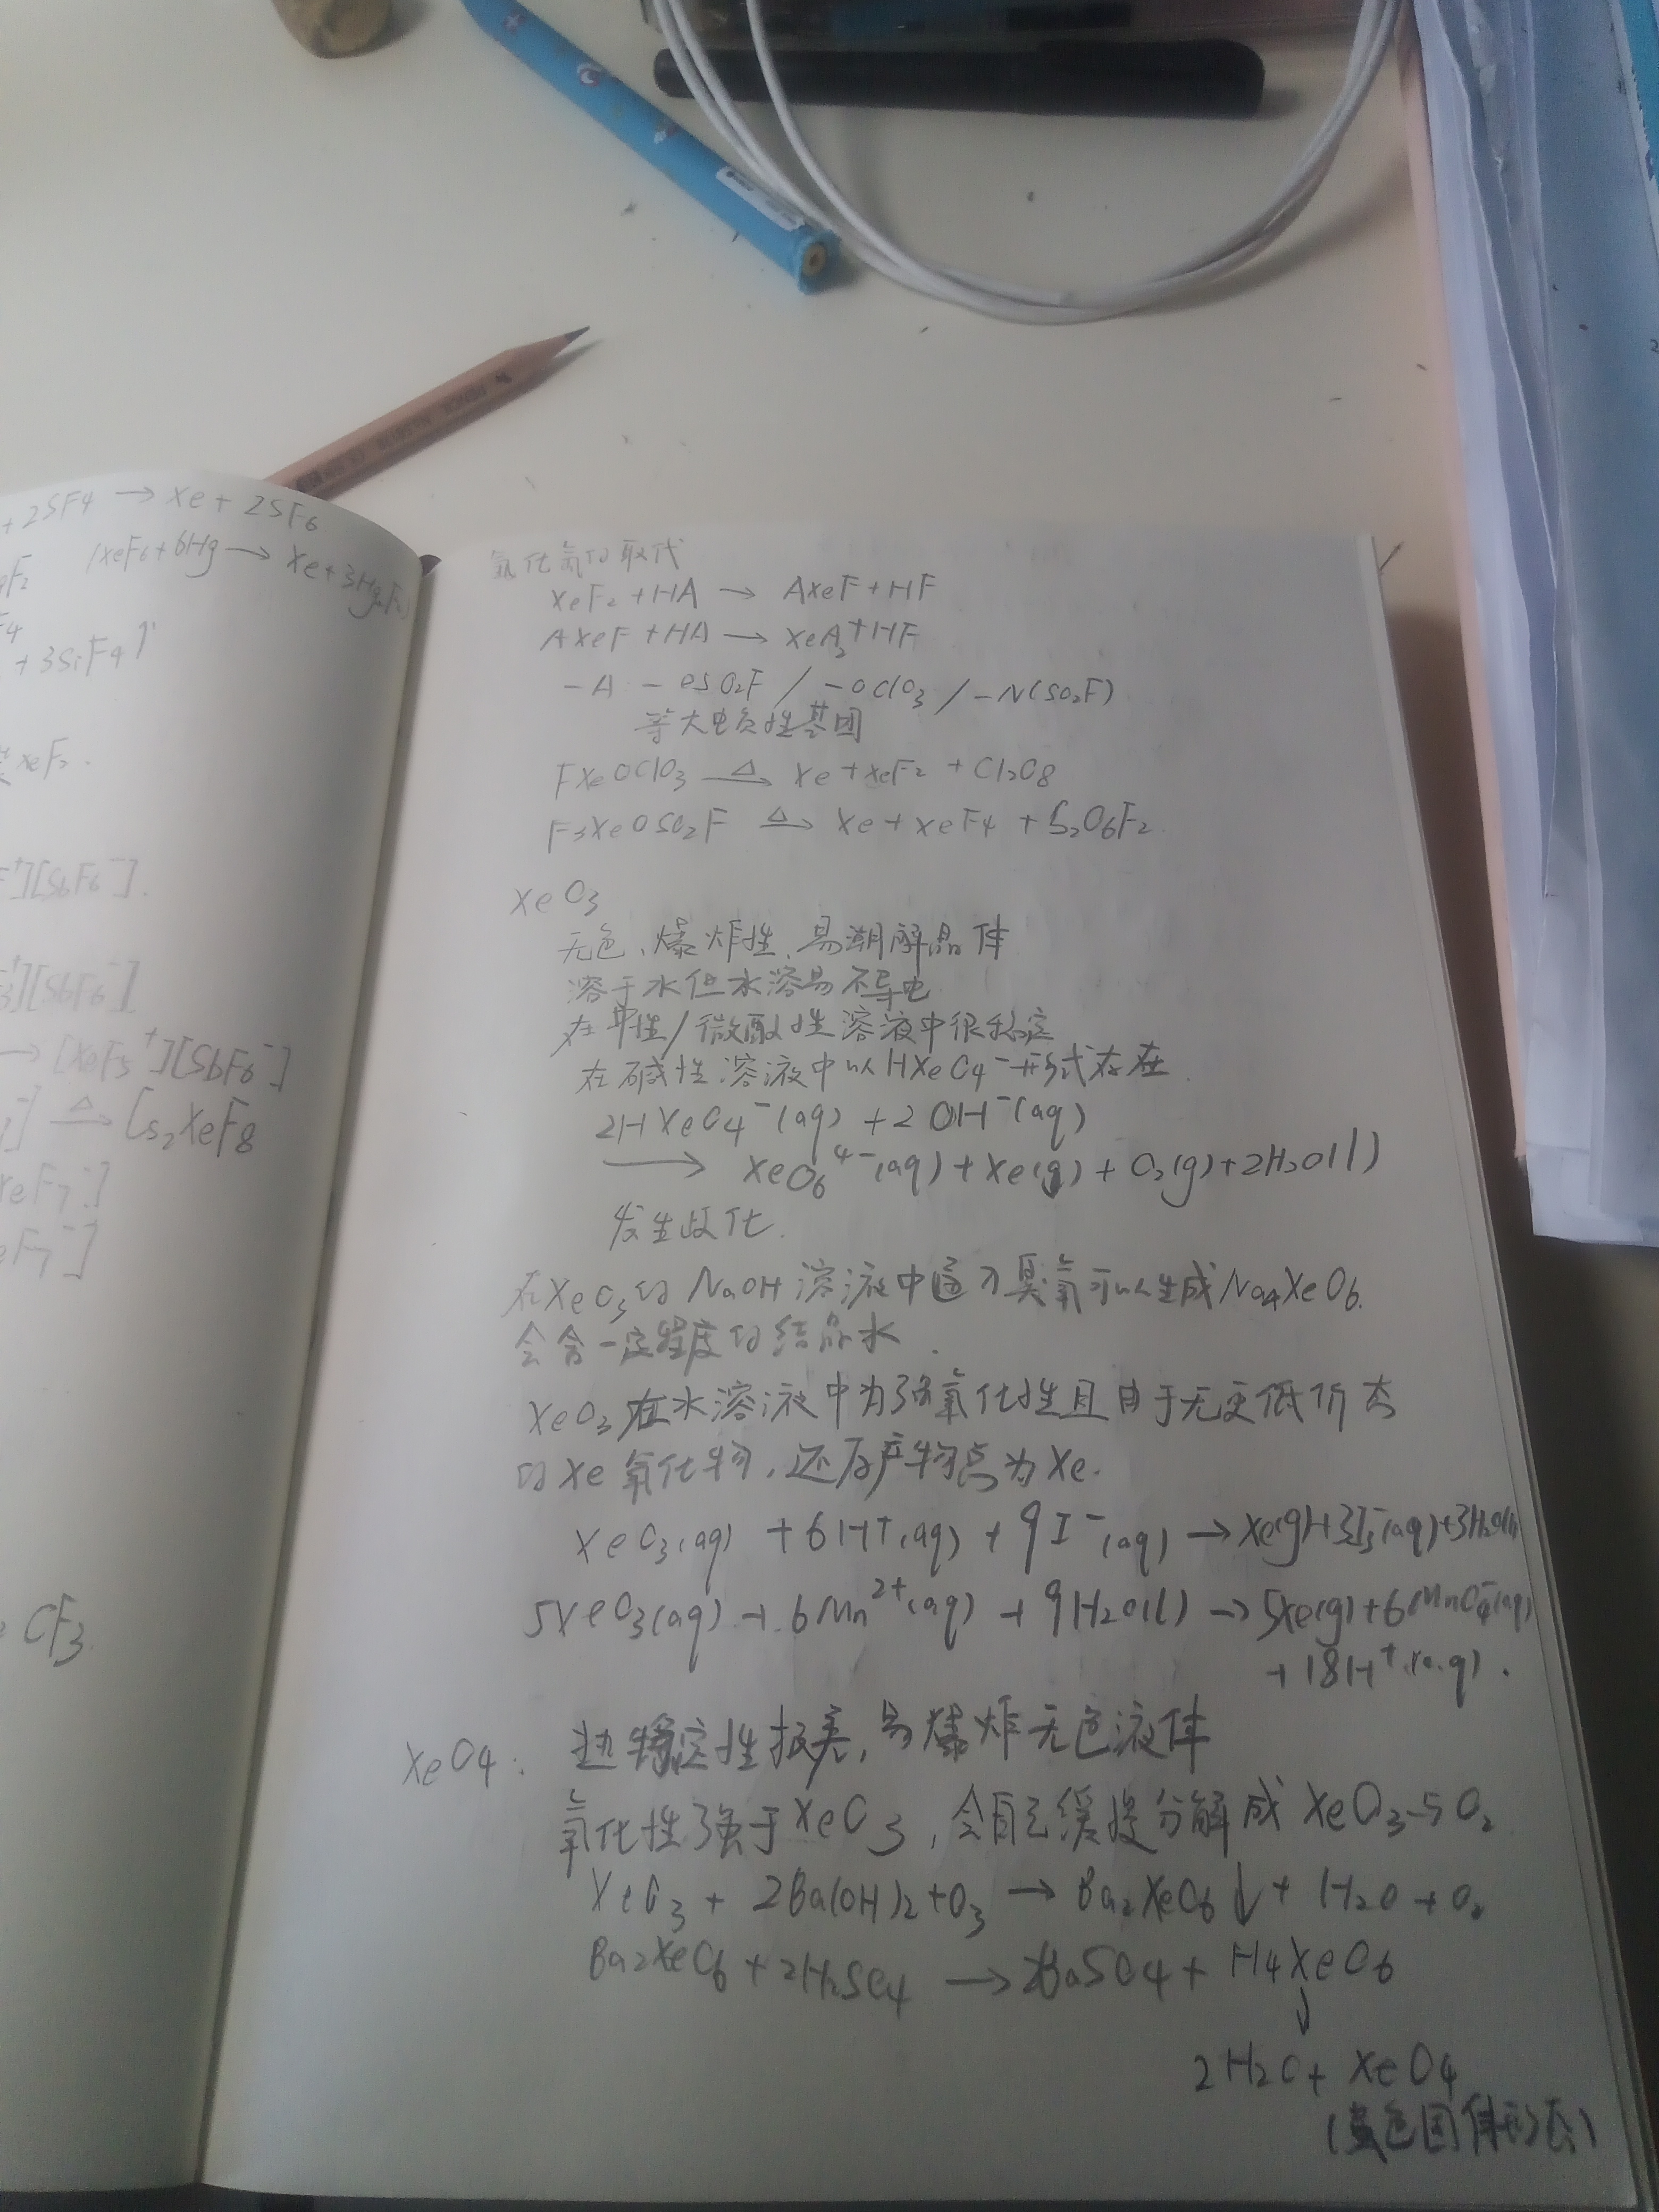 + 2SF4 → Xe + 2SF6
XeF6 + 6Hg → Xe + 3Hg2F2
+ 3SiF4↑
XeF2.
][SbF6⁻].
][SbF6⁻]
→ [XeF5⁺][SbF6⁻]
] △→ Cs2XeF8
XeF7⁻]
eF7⁻]
CF3.
氟化氙的取代
XeF2 + HA → AXeF + HF
AXeF + HA → XeA2 + HF
-A - OSO2F / -OClO3 / -N(SO2F)
等大电负性基团
FXeOClO3 △→ Xe + XeF2 + Cl2O8
F3XeOSO2F △→ Xe + XeF4 + S2O6F2
XeO3
无色、爆炸性、易潮解晶体
溶于水但水溶易不导电
在中性/微酸性溶液中很稳定
在碱性溶液中以HXeO4⁻形式存在
2HXeO4⁻(aq) + 2OH⁻(aq)
→ XeO6⁴⁻(aq) + Xe(g) + O2(g) + 2H2O(l)
发生歧化.
在XeO3的NaOH溶液中通入臭氧可以生成Na4XeO6.
会含一定程度的结晶水.
XeO3在水溶液中为强氧化性且由于无更低价态
的Xe氧化物,还原产物总为Xe.
XeO3(aq) + 6H⁺(aq) + 9I⁻(aq) → Xe(g) + 3I3⁻(aq) + 3H2O(l)
5XeO3(aq) + 6Mn²⁺(aq) + 9H2O(l) → 5Xe(g) + 6MnO4⁻(aq)
+ 18H⁺(aq).
XeO4: 热稳定性极差,易爆炸无色液体
氧化性强于XeO3,会自己缓慢分解成XeO3与O2
XeO3 + 2Ba(OH)2 + O3 → Ba2XeO6↓ + H2O + O2
Ba2XeO6 + 2H2SO4 → 2BaSO4 + H4XeO6
↓
2H2O + XeO4
(黄色固体形态)